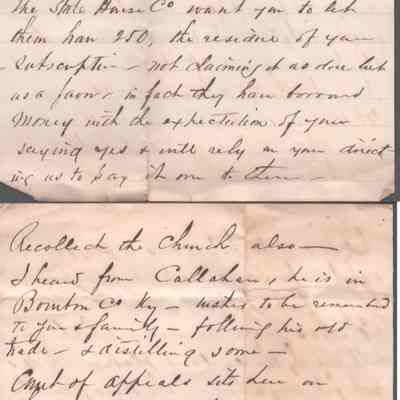 The State House Co want you to let
them have 250, the residue of your
subscription - not claiming it as due but
as a favor - in fact they have borrowed
money with the expectation of your
saying yes & will rely on your direct
ing us to pay it over to them -
Recollect the Church also -
I heard from Callahan, he is in
Bourbon Co Ky - wishes to be remembered
to you & family - following his old
trade - & distilling some -
Court of appeals sits here on